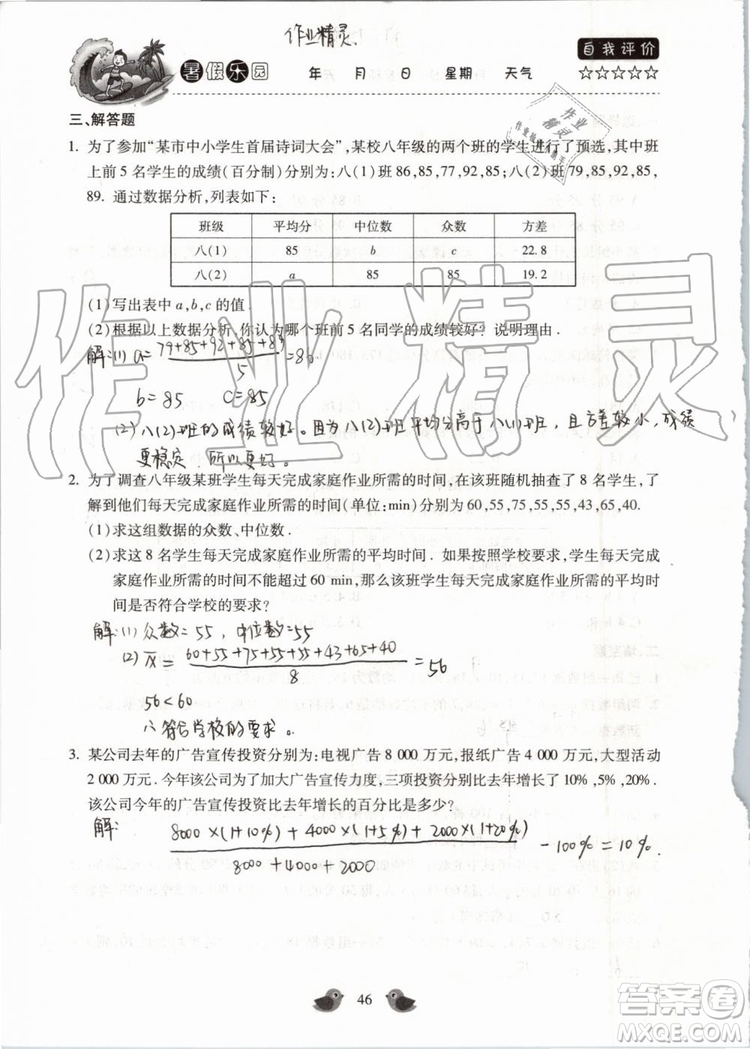 作业精灵
暑假乐园 年 月 日 星期 天气 自我评价
☆☆☆☆☆
三、解答题
1. 为了参加“某市中小学生首届诗词大会”,某校八年级的两个班的学生进行了预选,其中班
上前 5 名学生的成绩(百分制)分别为:八(1)班 86,85,77,92,85;八(2)班 79,85,92,85,
89. 通过数据分析,列表如下:
班级 平均分 中位数 众数 方差
八(1) 85 b c 22.8
八(2) a 85 85 19.2
(1)写出表中 a,b,c 的值.
(2)根据以上数据分析,你认为哪个班前 5 名同学的成绩较好?说明理由.
解:(1) a= (79+85+92+85+89)/5 =86
b=85 c=85
(2)八(2)班的成绩较好。因为八(2)班平均分高于八(1)班,且方差较小,成绩
更稳定,所以更好。
2. 为了调查八年级某班学生每天完成家庭作业所需的时间,在该班随机抽查了 8 名学生,了
解到他们每天完成家庭作业所需的时间(单位:min)分别为 60,55,75,55,55,43,65,40.
(1)求这组数据的众数、中位数.
(2)求这 8 名学生每天完成家庭作业所需的平均时间. 如果按照学校要求,学生每天完成
家庭作业所需的时间不能超过 60 min,那么该班学生每天完成家庭作业所需的平均时
间是否符合学校的要求?
解:(1)众数=55,中位数=55
(2) x̄ = (60+55+75+55+55+43+65+40)/8 =56
56<60
∴符合学校的要求。
3. 某公司去年的广告宣传投资分别为:电视广告 8 000 万元,报纸广告 4 000 万元,大型活动
2 000 万元. 今年该公司为了加大广告宣传力度,三项投资分别比去年增长了 10%,5%,20%.
该公司今年的广告宣传投资比去年增长的百分比是多少?
解:
(8000×(1+10%)+4000×(1+5%)+2000×(1+20%))/(8000+4000+2000) -100%=10%.
46
作业精灵
答案圈
MXQE.COM